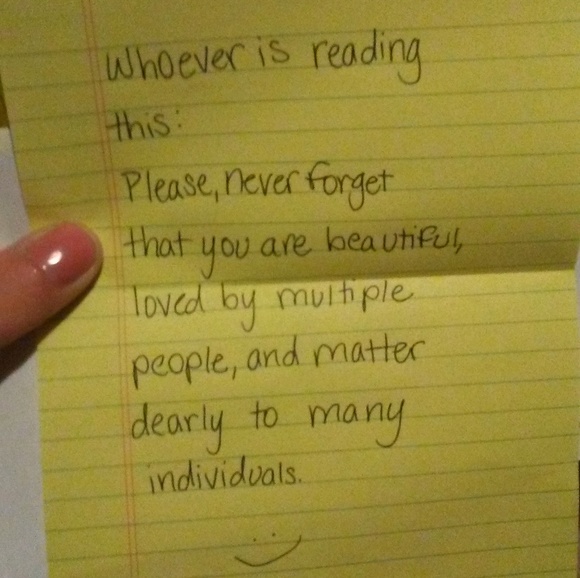 Whoever is reading
this:
Please, never forget
that you are beautiful,
loved by multiple
people, and matter
dearly to many
individuals.